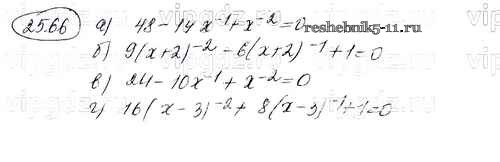 25.66 а) 48 - 14x⁻¹ + x⁻² = 0
reshebnik5-11.ru
б) 9(x+2)⁻² - 6(x+2)⁻¹ + 1 = 0
в) 24 - 10x⁻¹ + x⁻² = 0
г) 16(x-3)⁻² + 8(x-3)⁻¹ + 1 = 0